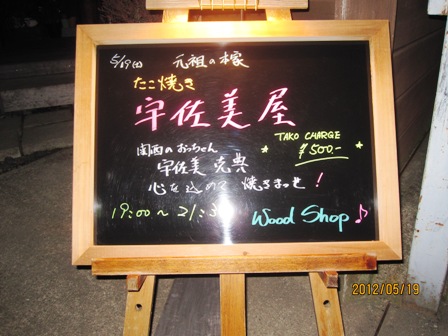 5/19(土) 元祖の本家
たこ焼き
宇佐美屋
TAKO CHARGE
¥500-
関西のおっちゃん
宇佐美 克典
心を込めて 焼きまっせ!
19:00～21:3
Wood Shop♪
2012/05/19